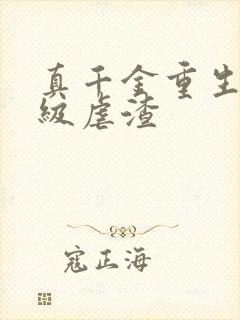 真千金重生
级虐渣
寇正海